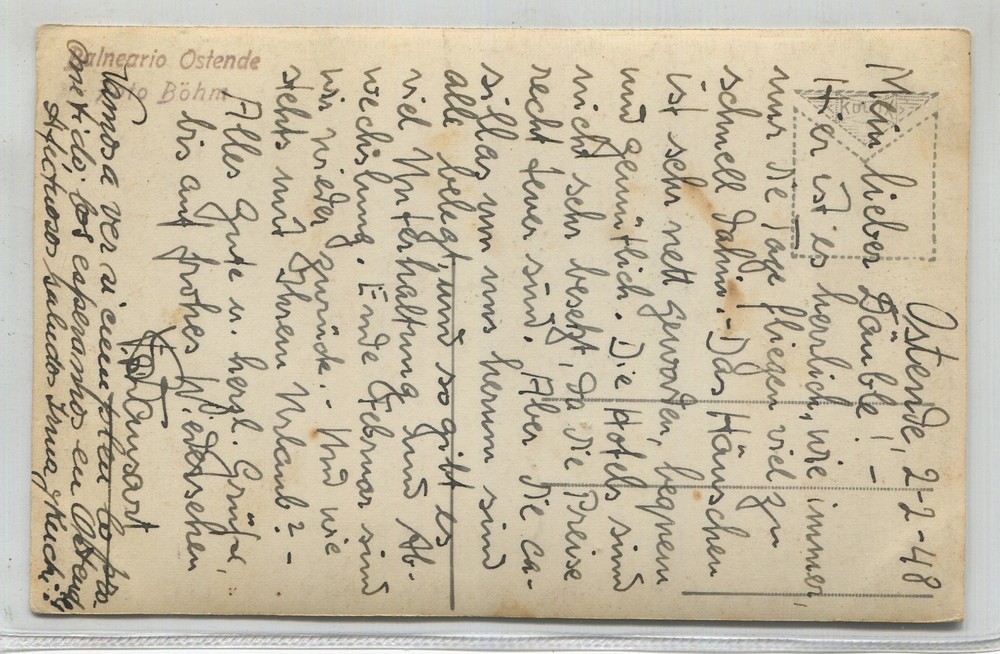 Balneario Ostende
Foto Böhm
Ostende, 2-2-48
Mein lieber Däuble! -
Hier ist es herrlich, wie immer,
nur die Tage fliegen viel zu
schnell dahin. - Das Häuschen
ist sehr nett geworden, bequem
und gemütlich. Die Hotels sind
nicht sehr besetzt, da die Preise
recht teuer sind. Aber die ca-
sillas um uns herum sind
alle belegt, und so gibt es
viel Unterhaltung und Ab-
wechslung. Ende Februar sind
wir wieder zurück. - Und wie
steht's mit Ihrem Urlaub? -
Alles Gute u. herzl. Grüße,
bis auf frohes Wiedersehen
Vamos a ver si cumplen lo pro-
metido: los esperamos en Ostende
Afectuosos saludos